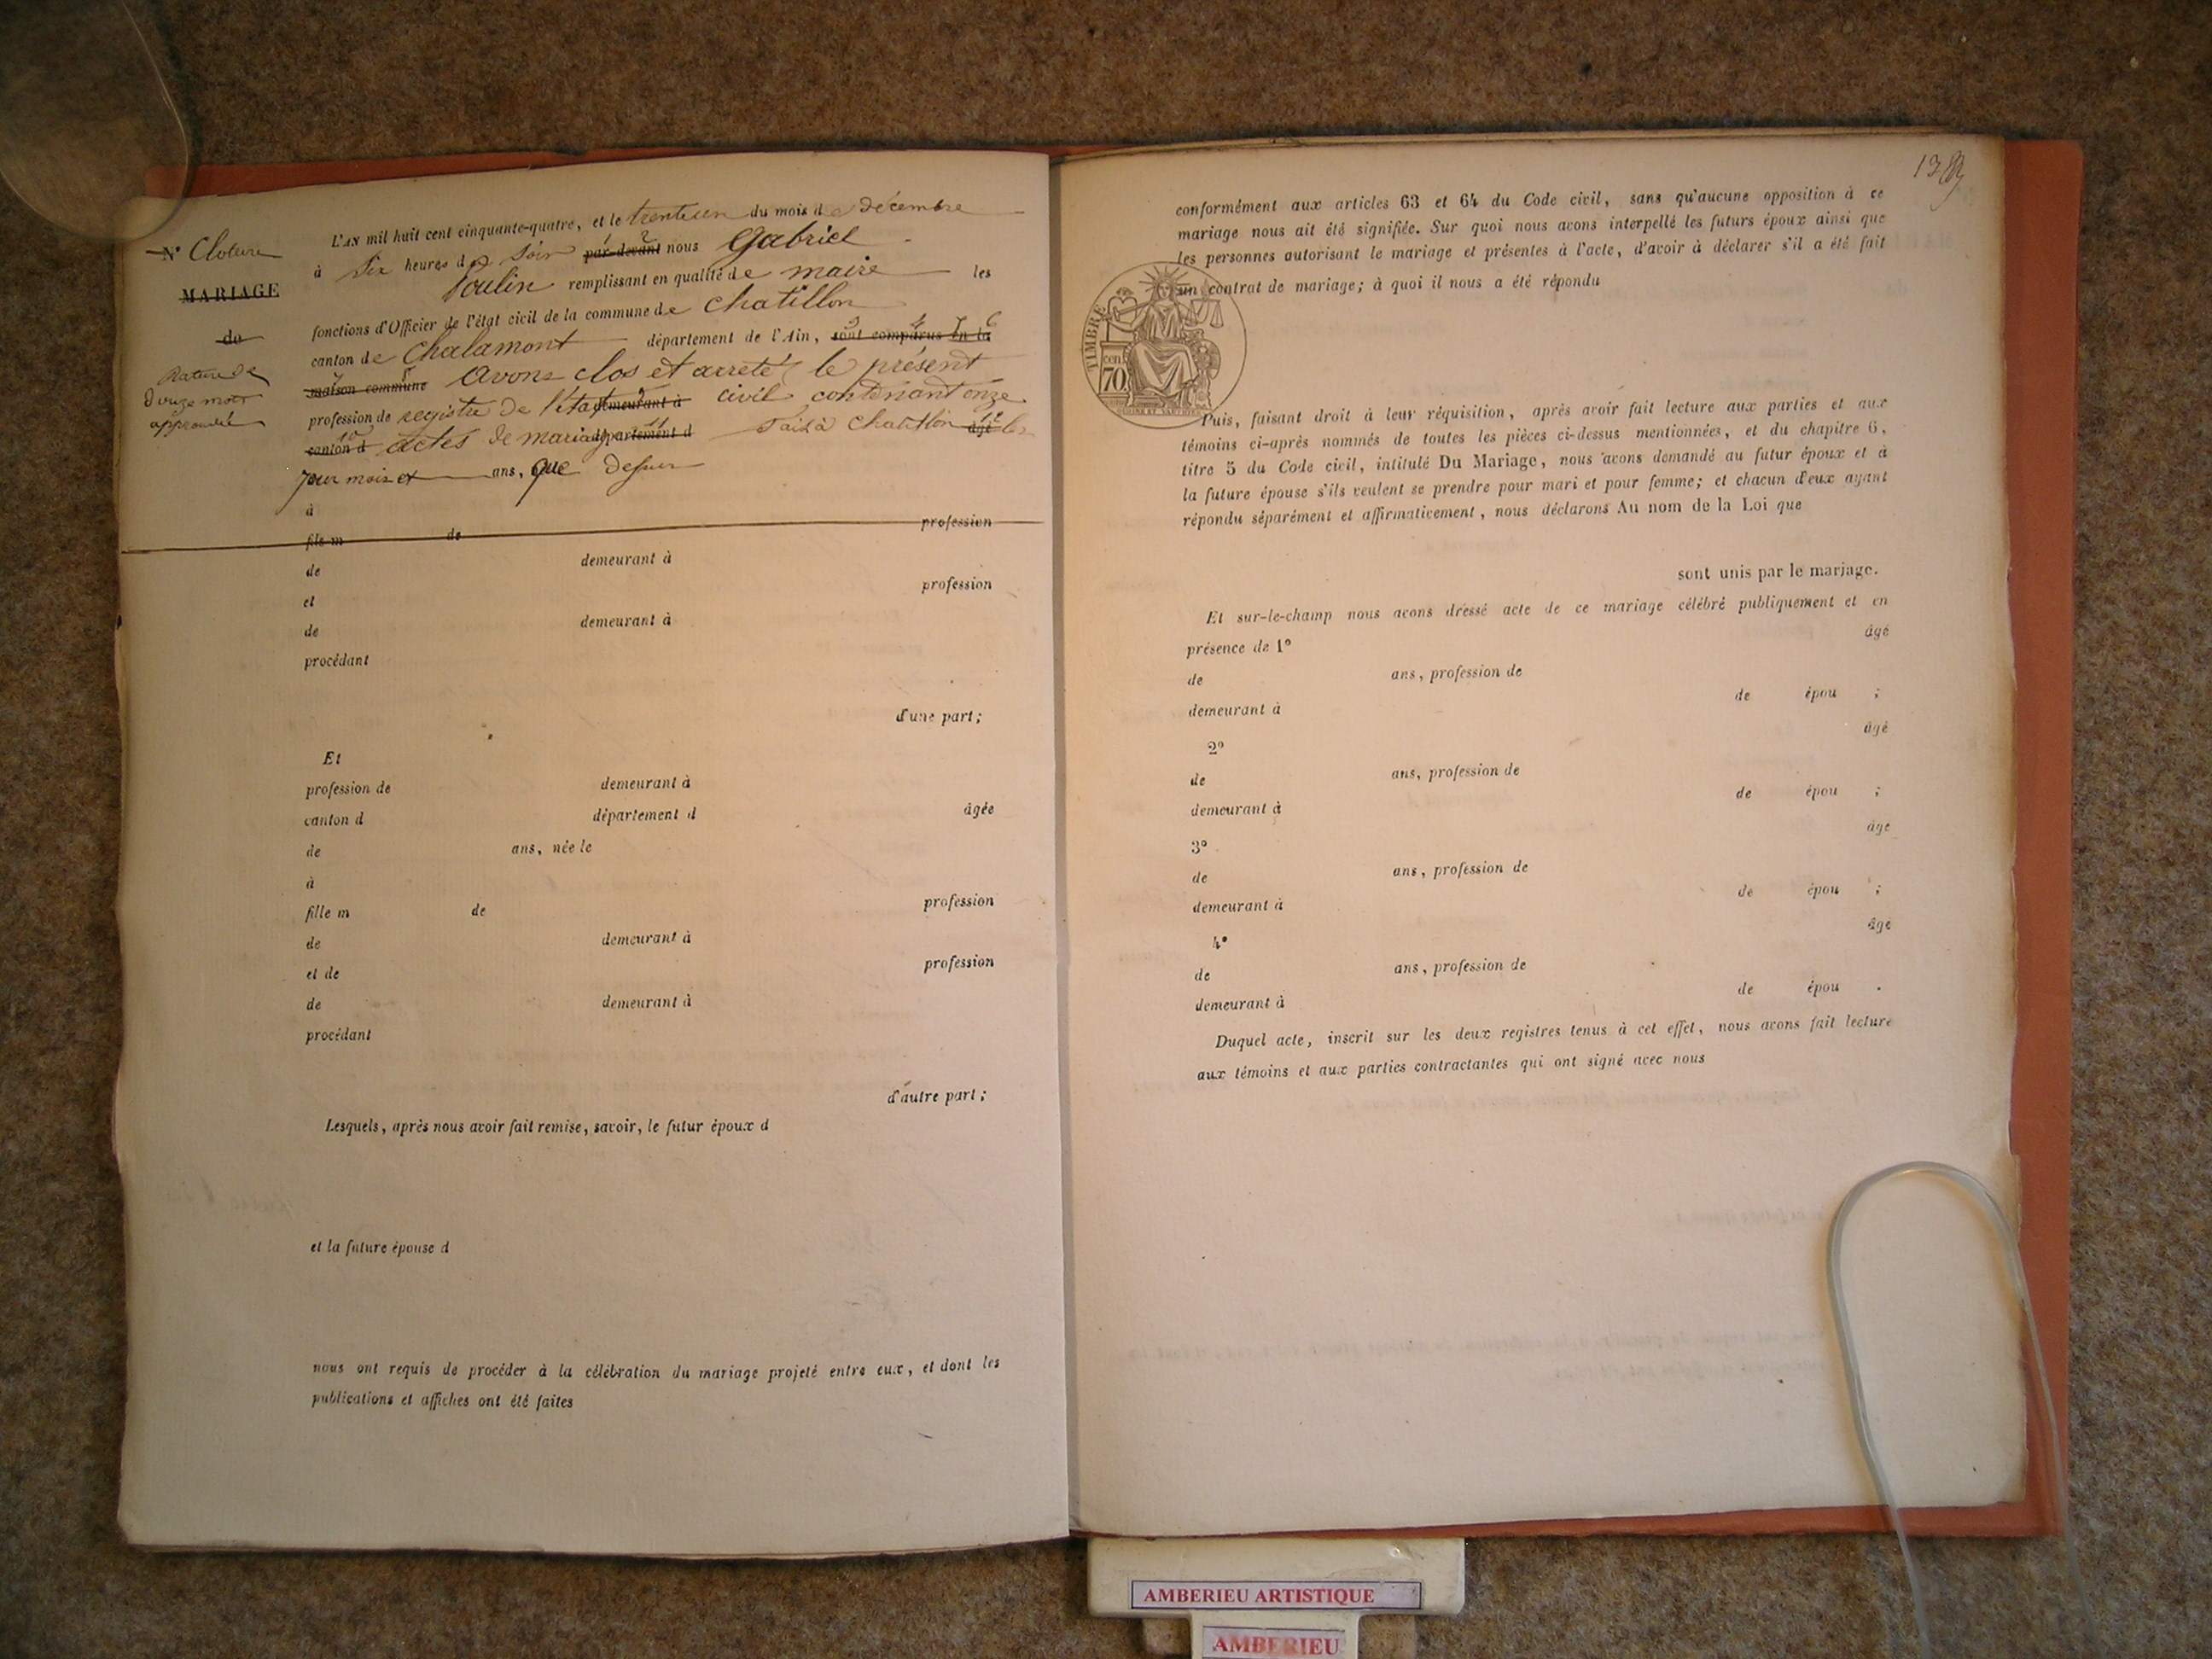 L'AN mil huit cent cinquante-quatre, et le trenteun du mois de décembre
N° Cloture
à six heures du soir par-devant nous Gabriel
MARIAGE
Poulin remplissant en qualité de maire les
do
fonctions d'Officier de l'état civil de la commune de Chatillon
canton de Chalamont département de l'Ain, sont comparus en la
Rature de
douze mots
approuvée
maison commune avons clos et arreté le présent
profession de registre de l'état demeurant à civil contenant onze
canton d actes de mariage département d fait à Chatillon âgé les
jour mois et ans, que dessus
à
fils m de profession
de demeurant à
et profession
de demeurant à
procédant
d'une part;
Et
profession de demeurant à
canton d département d âgée
de ans, née le
à
fille m de profession
de demeurant à
et de profession
de demeurant à
procédant
d'autre part;
Lesquels, après nous avoir fait remise, savoir, le futur époux d
et la future épouse d
nous ont requis de procéder à la célébration du mariage projeté entre eux, et dont les
publications et affiches ont été faites
conformément aux articles 63 et 64 du Code civil, sans qu'aucune opposition à ce
mariage nous ait été signifiée. Sur quoi nous avons interpellé les futurs époux ainsi que
les personnes autorisant le mariage et présentes à l'acte, d'avoir à déclarer s'il a été fait
un contrat de mariage; à quoi il nous a été répondu
TIMBRE
cen
70
Puis, faisant droit à leur réquisition, après avoir fait lecture aux parties et aux
témoins ci-après nommés de toutes les pièces ci-dessus mentionnées, et du chapitre 6,
titre 5 du Code civil, intitulé Du Mariage, nous avons demandé au futur époux et à
la future épouse s'ils veulent se prendre pour mari et pour femme; et chacun d'eux ayant
répondu séparément et affirmativement, nous déclarons Au nom de la Loi que
sont unis par le mariage.
Et sur-le-champ nous avons dressé acte de ce mariage célébré publiquement et en
présence de 1° âgé
de ans, profession de
demeurant à de épou ;
2° âgé
de ans, profession de
demeurant à de épou ;
3° âgé
de ans, profession de
demeurant à de épou ;
4° âgé
de ans, profession de
demeurant à de épou .
Duquel acte, inscrit sur les deux registres tenus à cet effet, nous avons fait lecture
aux témoins et aux parties contractantes qui ont signé avec nous
AMBERIEU ARTISTIQUE
AMBERIEU